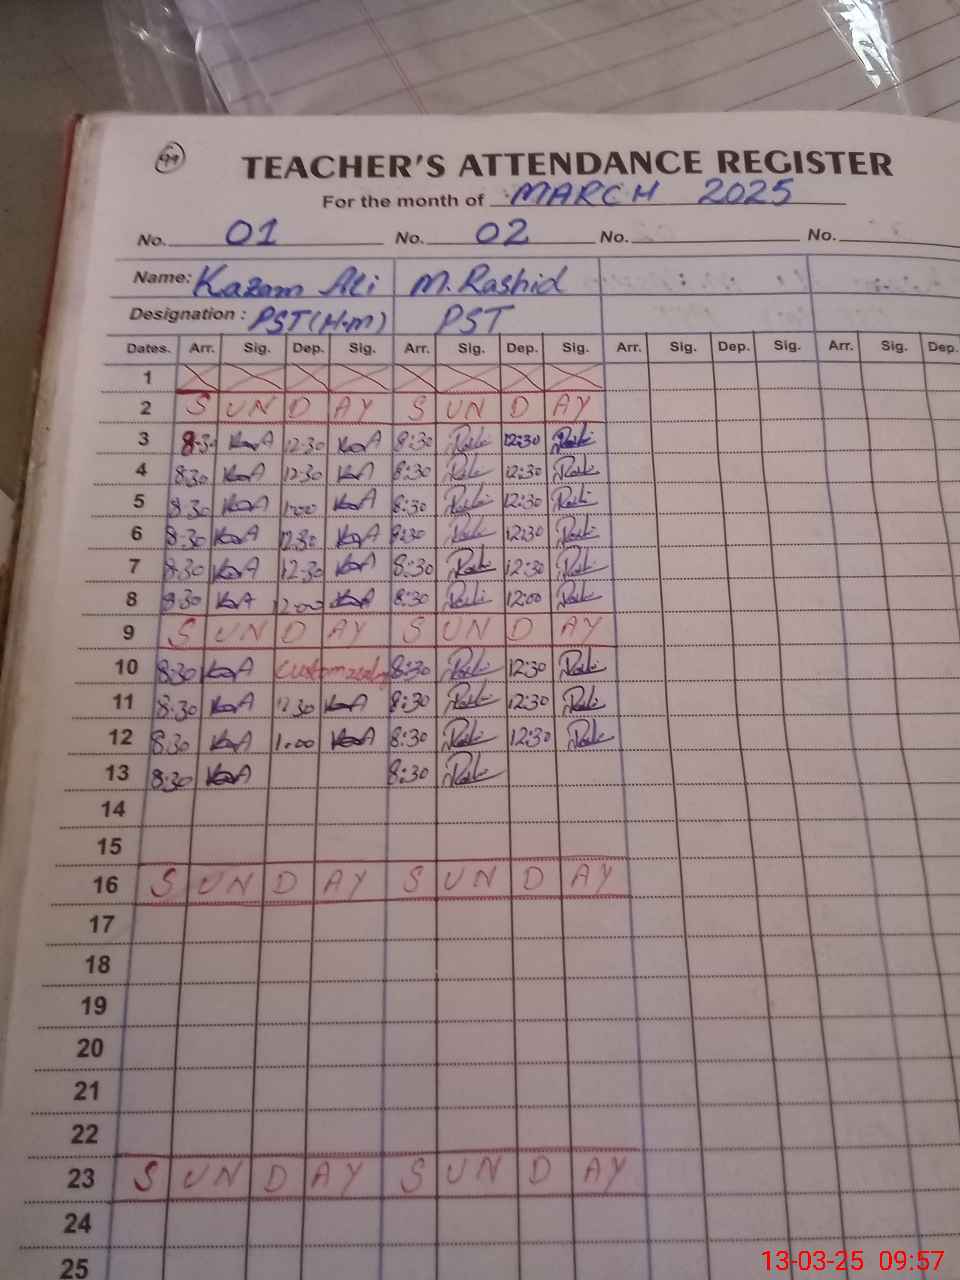 99
TEACHER'S ATTENDANCE REGISTER
For the month of MARCH 2025
No. 01 No. 02 No. No.
Name: Kazam Ali M. Rashid
Designation : PST (H.M) PST
Dates. Arr. Sig. Dep. Sig. Arr. Sig. Dep. Sig. Arr. Sig. Dep. Sig. Arr. Sig. Dep.
1
2 S UN D AY S UN D AY
3 8:30 KoA 12:30 KoA 8:30 12:30
4 8:30 KoA 12:30 KoA 8:30 12:30
5 8:30 KoA 1:00 KoA 8:30 12:30
6 8:30 KoA 12:30 KoA 8:30 12:30
7 8:30 KoA 12:30 KoA 8:30 12:30
8 8:30 KoA 12:00 KoA 8:30 12:00
9 S UN D AY S UN D AY
10 8:30 KoA 8:30 12:30
11 8:30 KoA 12:30 KoA 8:30 12:30
12 8:30 KoA 1:00 KoA 8:30 12:30
13 8:30 KoA 8:30
14
15
16 S UN D AY S UN D AY
17
18
19
20
21
22
23 S UN D AY S UN D AY
24
25
13-03-25 09:57